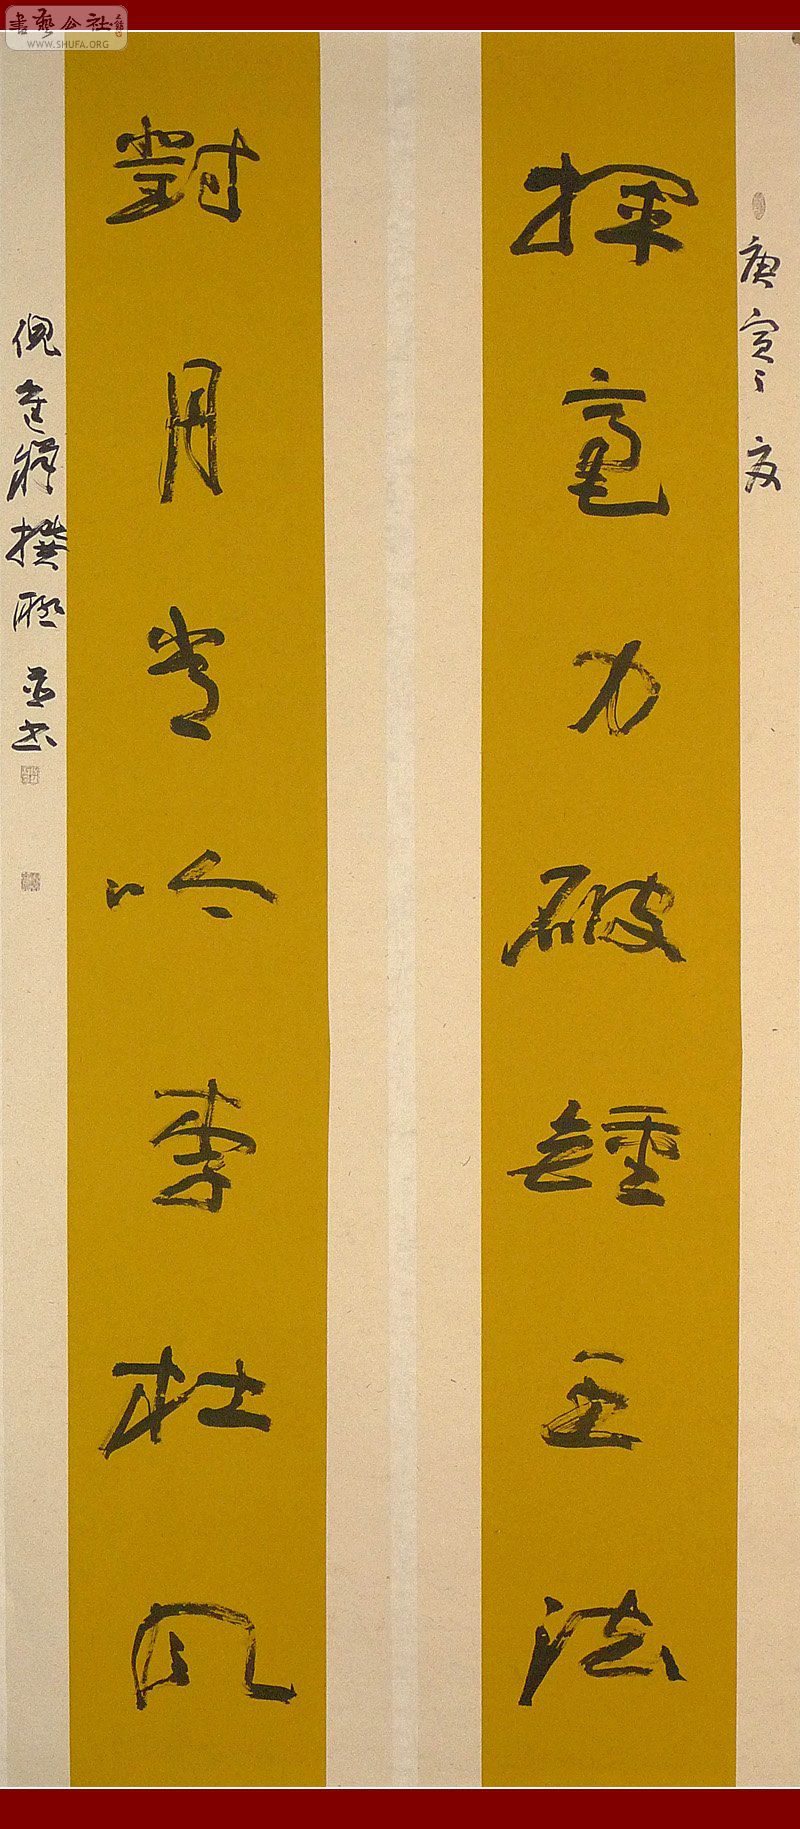 書藝公社
WWW.SHUFA.ORG
庚寅之夏
揮毫力破鍾王法
對月常吟李杜風
倪進祥撰聯並書